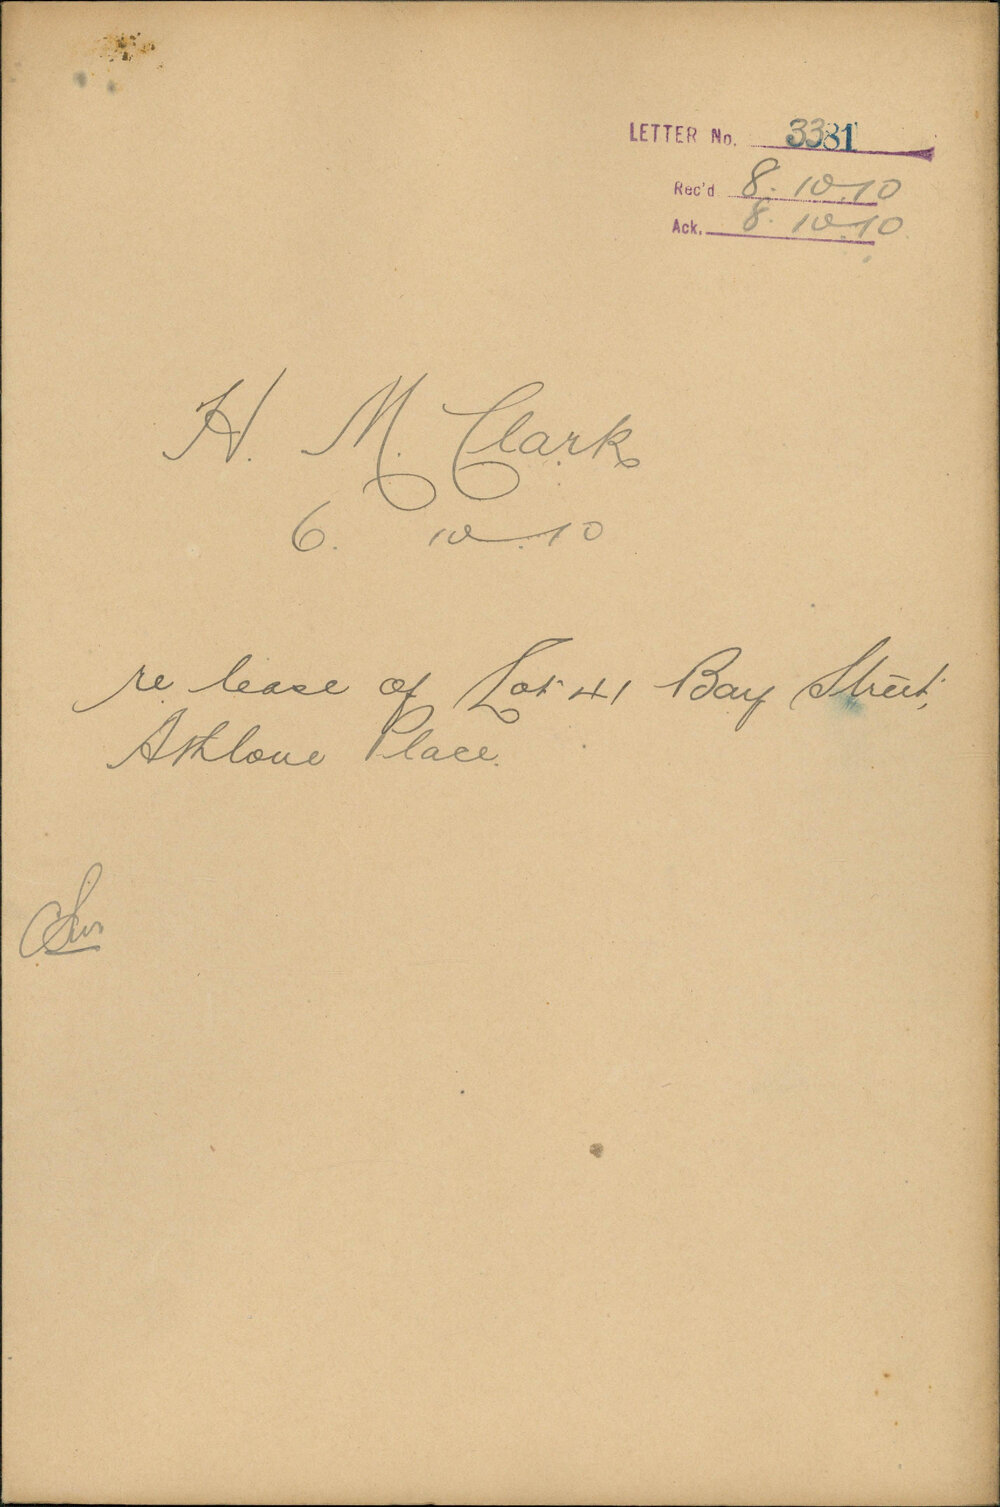 LETTER No. 3381
Rec'd 8. 10.10
Ack. 8. 10.10
H. M. Clark
6. 10.10
re lease of Lot 41 Bay Street,
Athlone Place.